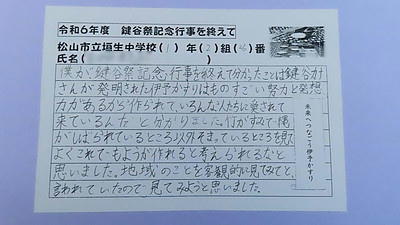 令和6年度 鍵谷祭記念行事を終えて
松山市立垣生中学校( 1 )年( 2 )組( )番
氏名( )
僕が鍵谷祭記念行事を終えて分かったことは鍵谷カナ
さんが発明された伊予かすりはものすごい努力と発想
力があるから作られて、いろんな人たちに愛されて
来ているんだと分かりました。竹がすみで、
がしばられているところ以外そまっているところを見て
よくこれでもようが作れると考えられるなと
思いました。地域のことを客観的に見てみてと、
言われていたので見てみようと思いました。
未来へつなごう伊予かすり